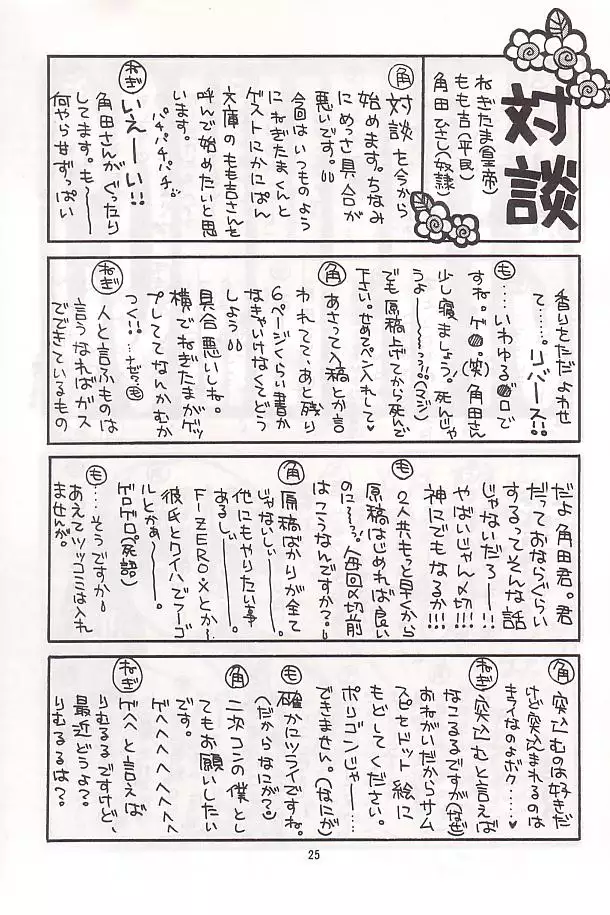 対談
ねぎたま(皇帝)
もも吉(平民)
角田ひさし(奴隷)
角 対談を今から
始めます。ちなみ
にめっさ具合が
悪いです。
今回はいつものよう
にねぎたまくんと
ゲストにかにぱん
文庫のもも吉さんを
呼んで始めたいと思
います。
パチパチパチ。
ねぎ いえーい!!
角田さんがぐったり
してます。も〜
何やらせずっぱい
香りただよわせ
て……。リバース!!
も ……いわゆる●ロで
すね。ゲ●。(笑)角田さん
少し寝ましょう。死んじゃ
うよ〜〜っっ(マジ)
でも原稿上げてから死んで
下さい。せめてペン入れして♥
角 あさって入稿とか言
われてて、あと残り
6ページくらい書か
なきゃいけなくてどう
しよう
具合悪いしね。
横でねぎたまがゲッ
プしててなんかむか
つく!!…なぜっも
ねぎ 人と言ふものは
言うなればガス
でできているもの
だよ角田君。君
だっておならぐらい
するってそんな話
じゃないだろーー!!
やばいじゃん〆切!!
神にでもなるか!!!
も 2人共もっと早くから
原稿はじめれば良い
のに〜っっ。人毎回〆切前
はこうなんですか?
角 原稿ばかりが全て
じゃないしぃ〜。
他にもやりたい事
あるしぃ〜。
F-ZERO:Xとか〜
彼氏とワイハでフーゴ
ルとかぁ〜。
ゲロゲロ。(死語)
も ……そうですか
あえてツッコミは入れ
ませんが。
角 突込むのは好きだ
けど突込まれるのは
きらいなのよボク……♥
ねぎ 突込むと言えば
なこるるですが(なぜ)
おねがいだからサム
スピをドット絵に
もどしてください。
ポリゴンじゃー…
できません。(なにが)
も 確かにツライですね。
(だからなにが?)
角 二次コンの僕とし
てもお願いしたい
です。
ゲヘヘヘヘヘヘヘ
ねぎ ゲヘヘと言えば
りむるるですけど、
最近どうよ?。
りむるるは?。
25